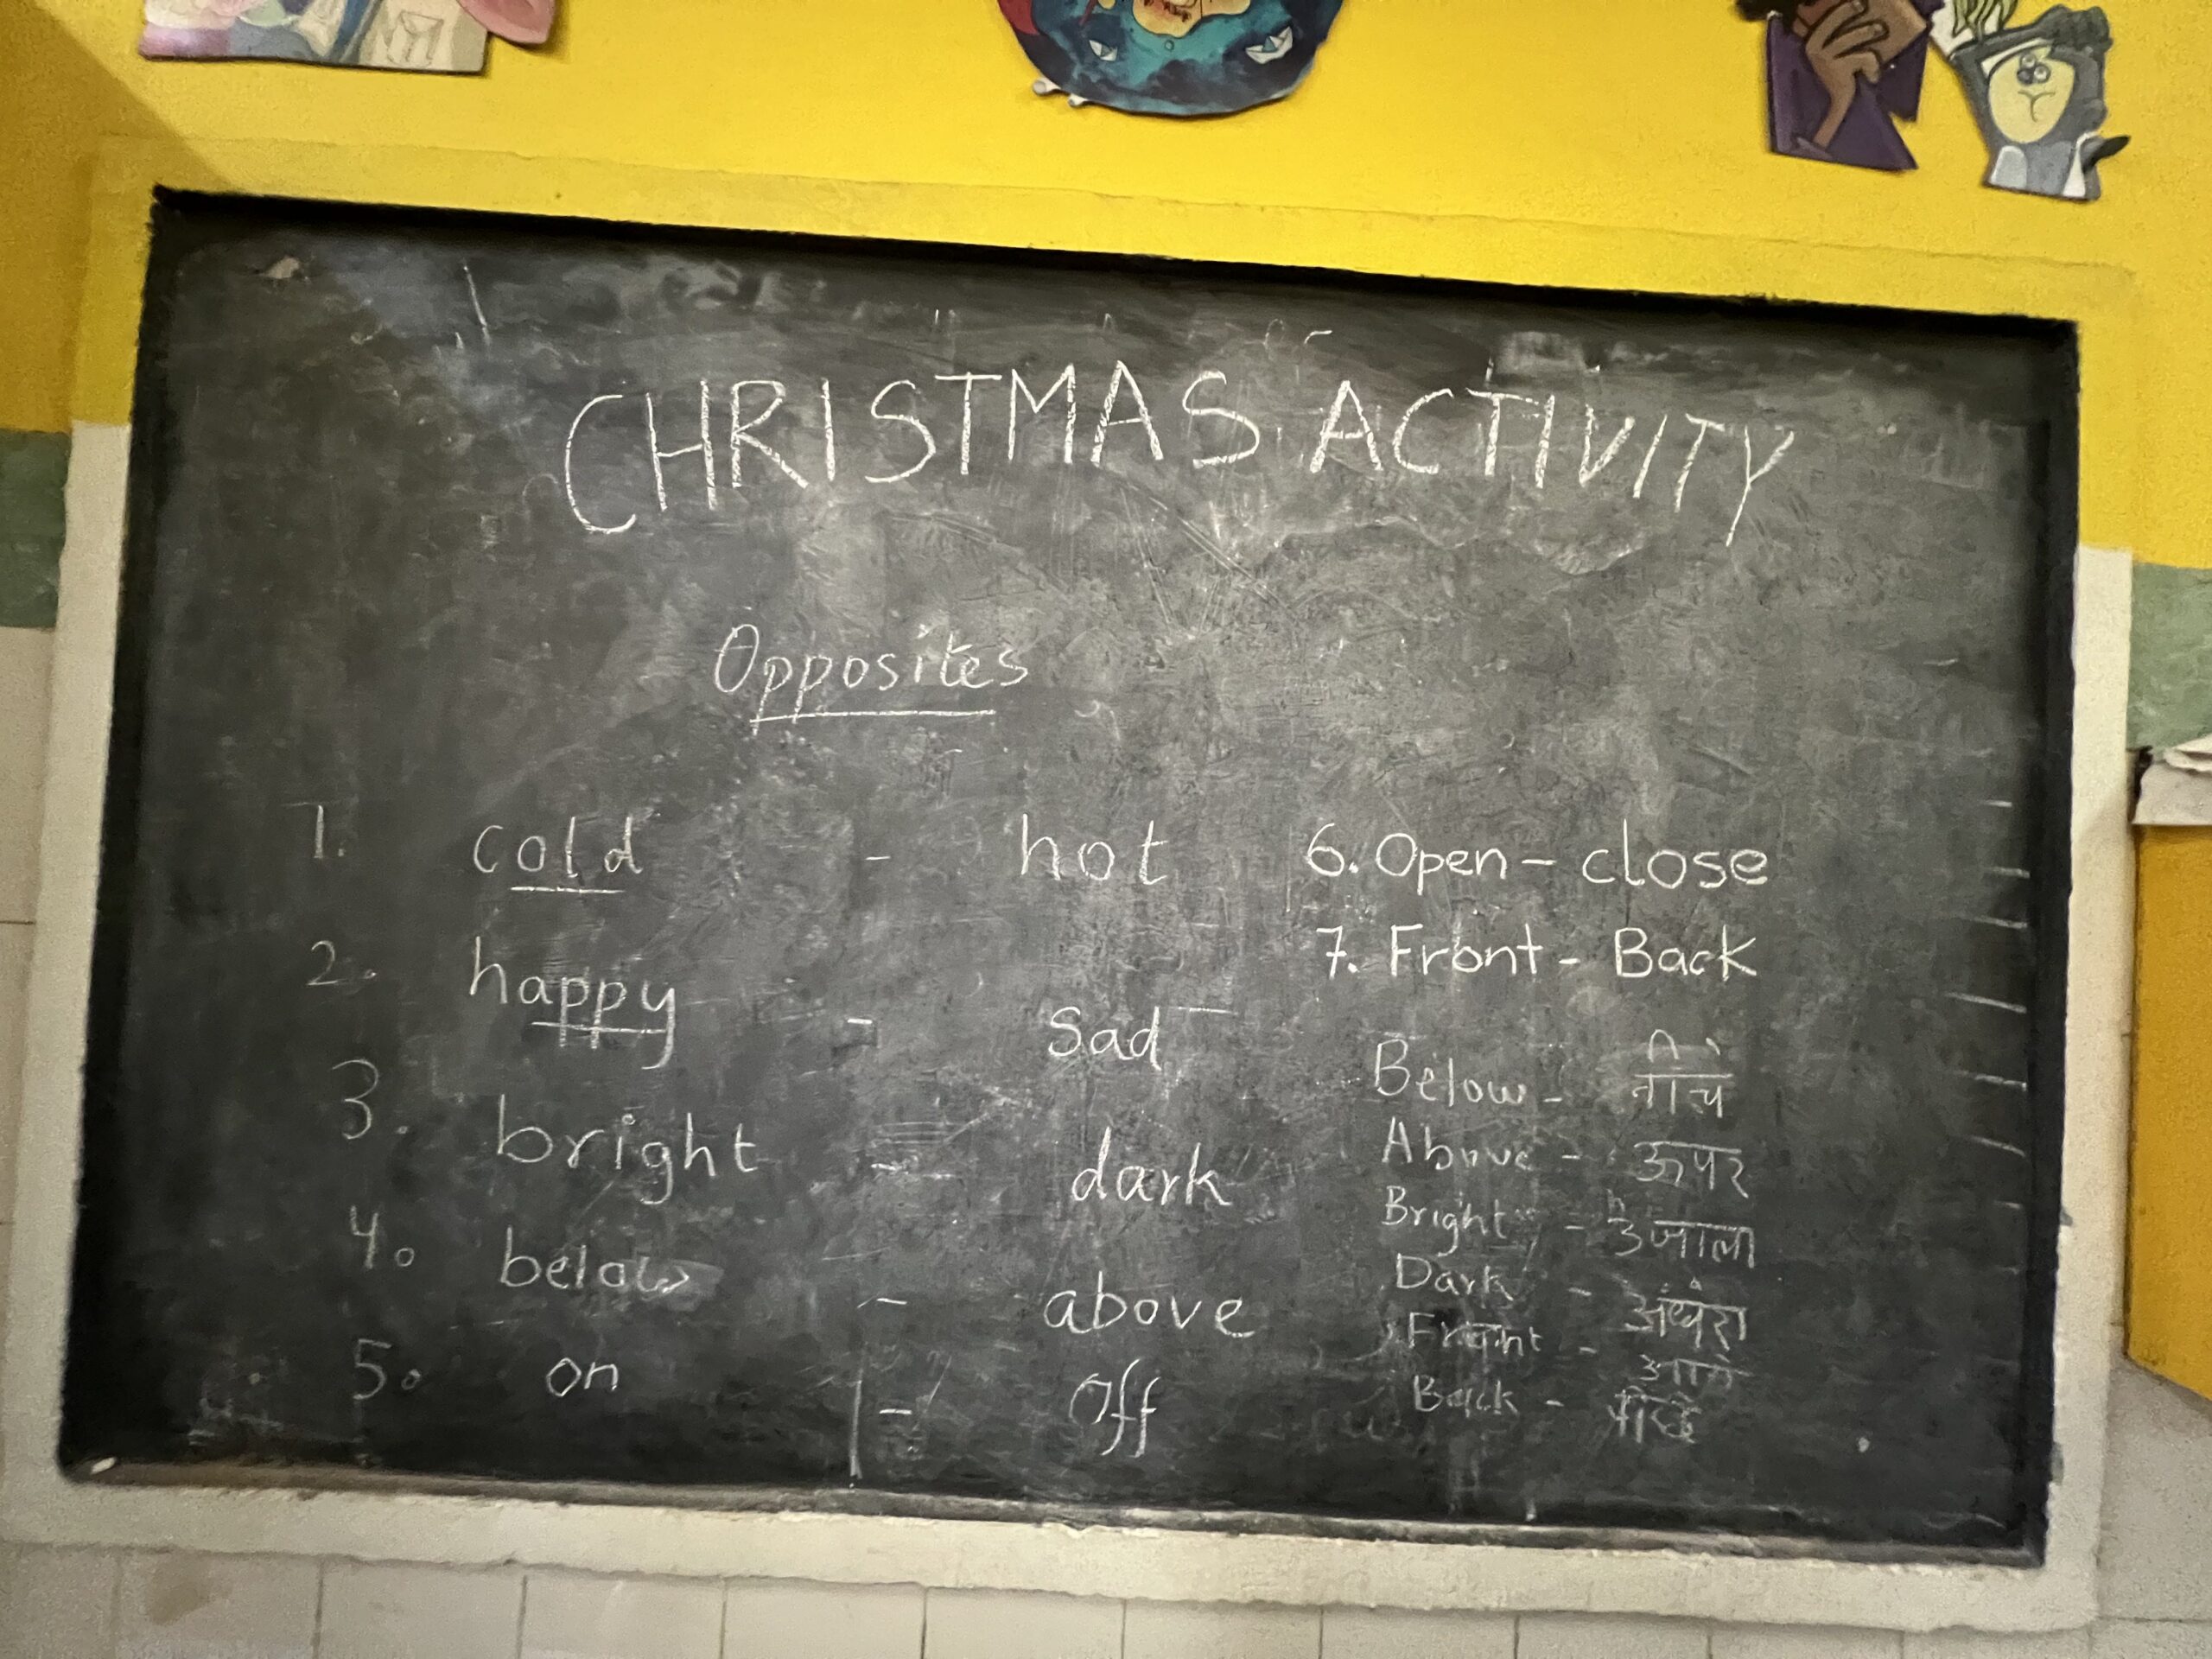 CHRISTMAS ACTIVITY
Opposites
1. cold - hot
2. happy - sad
3. bright - dark
4. below - above
5. on - off
6. Open - close
7. Front - Back
Below - नीचे
Above - ऊपर
Bright - उजाला
Dark - अंधेरा
Front - आगे
Back - पीछे